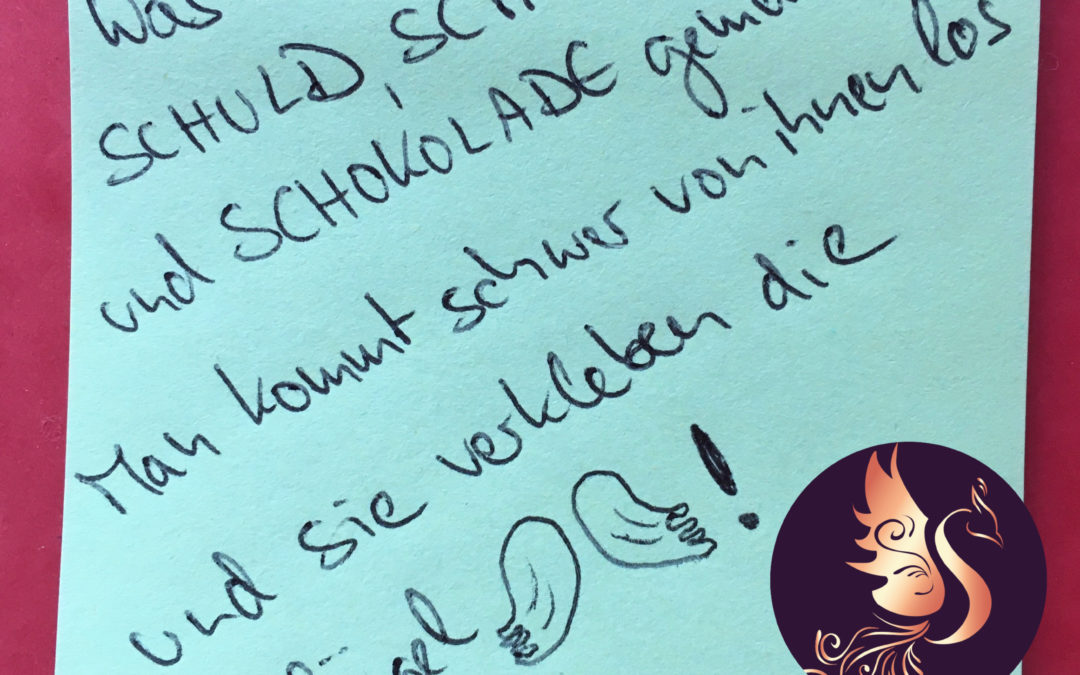 Was
SCHULD,
und SCHOKOLADE
Man kommt schwer von ihnen los
und sie verkleben die
!